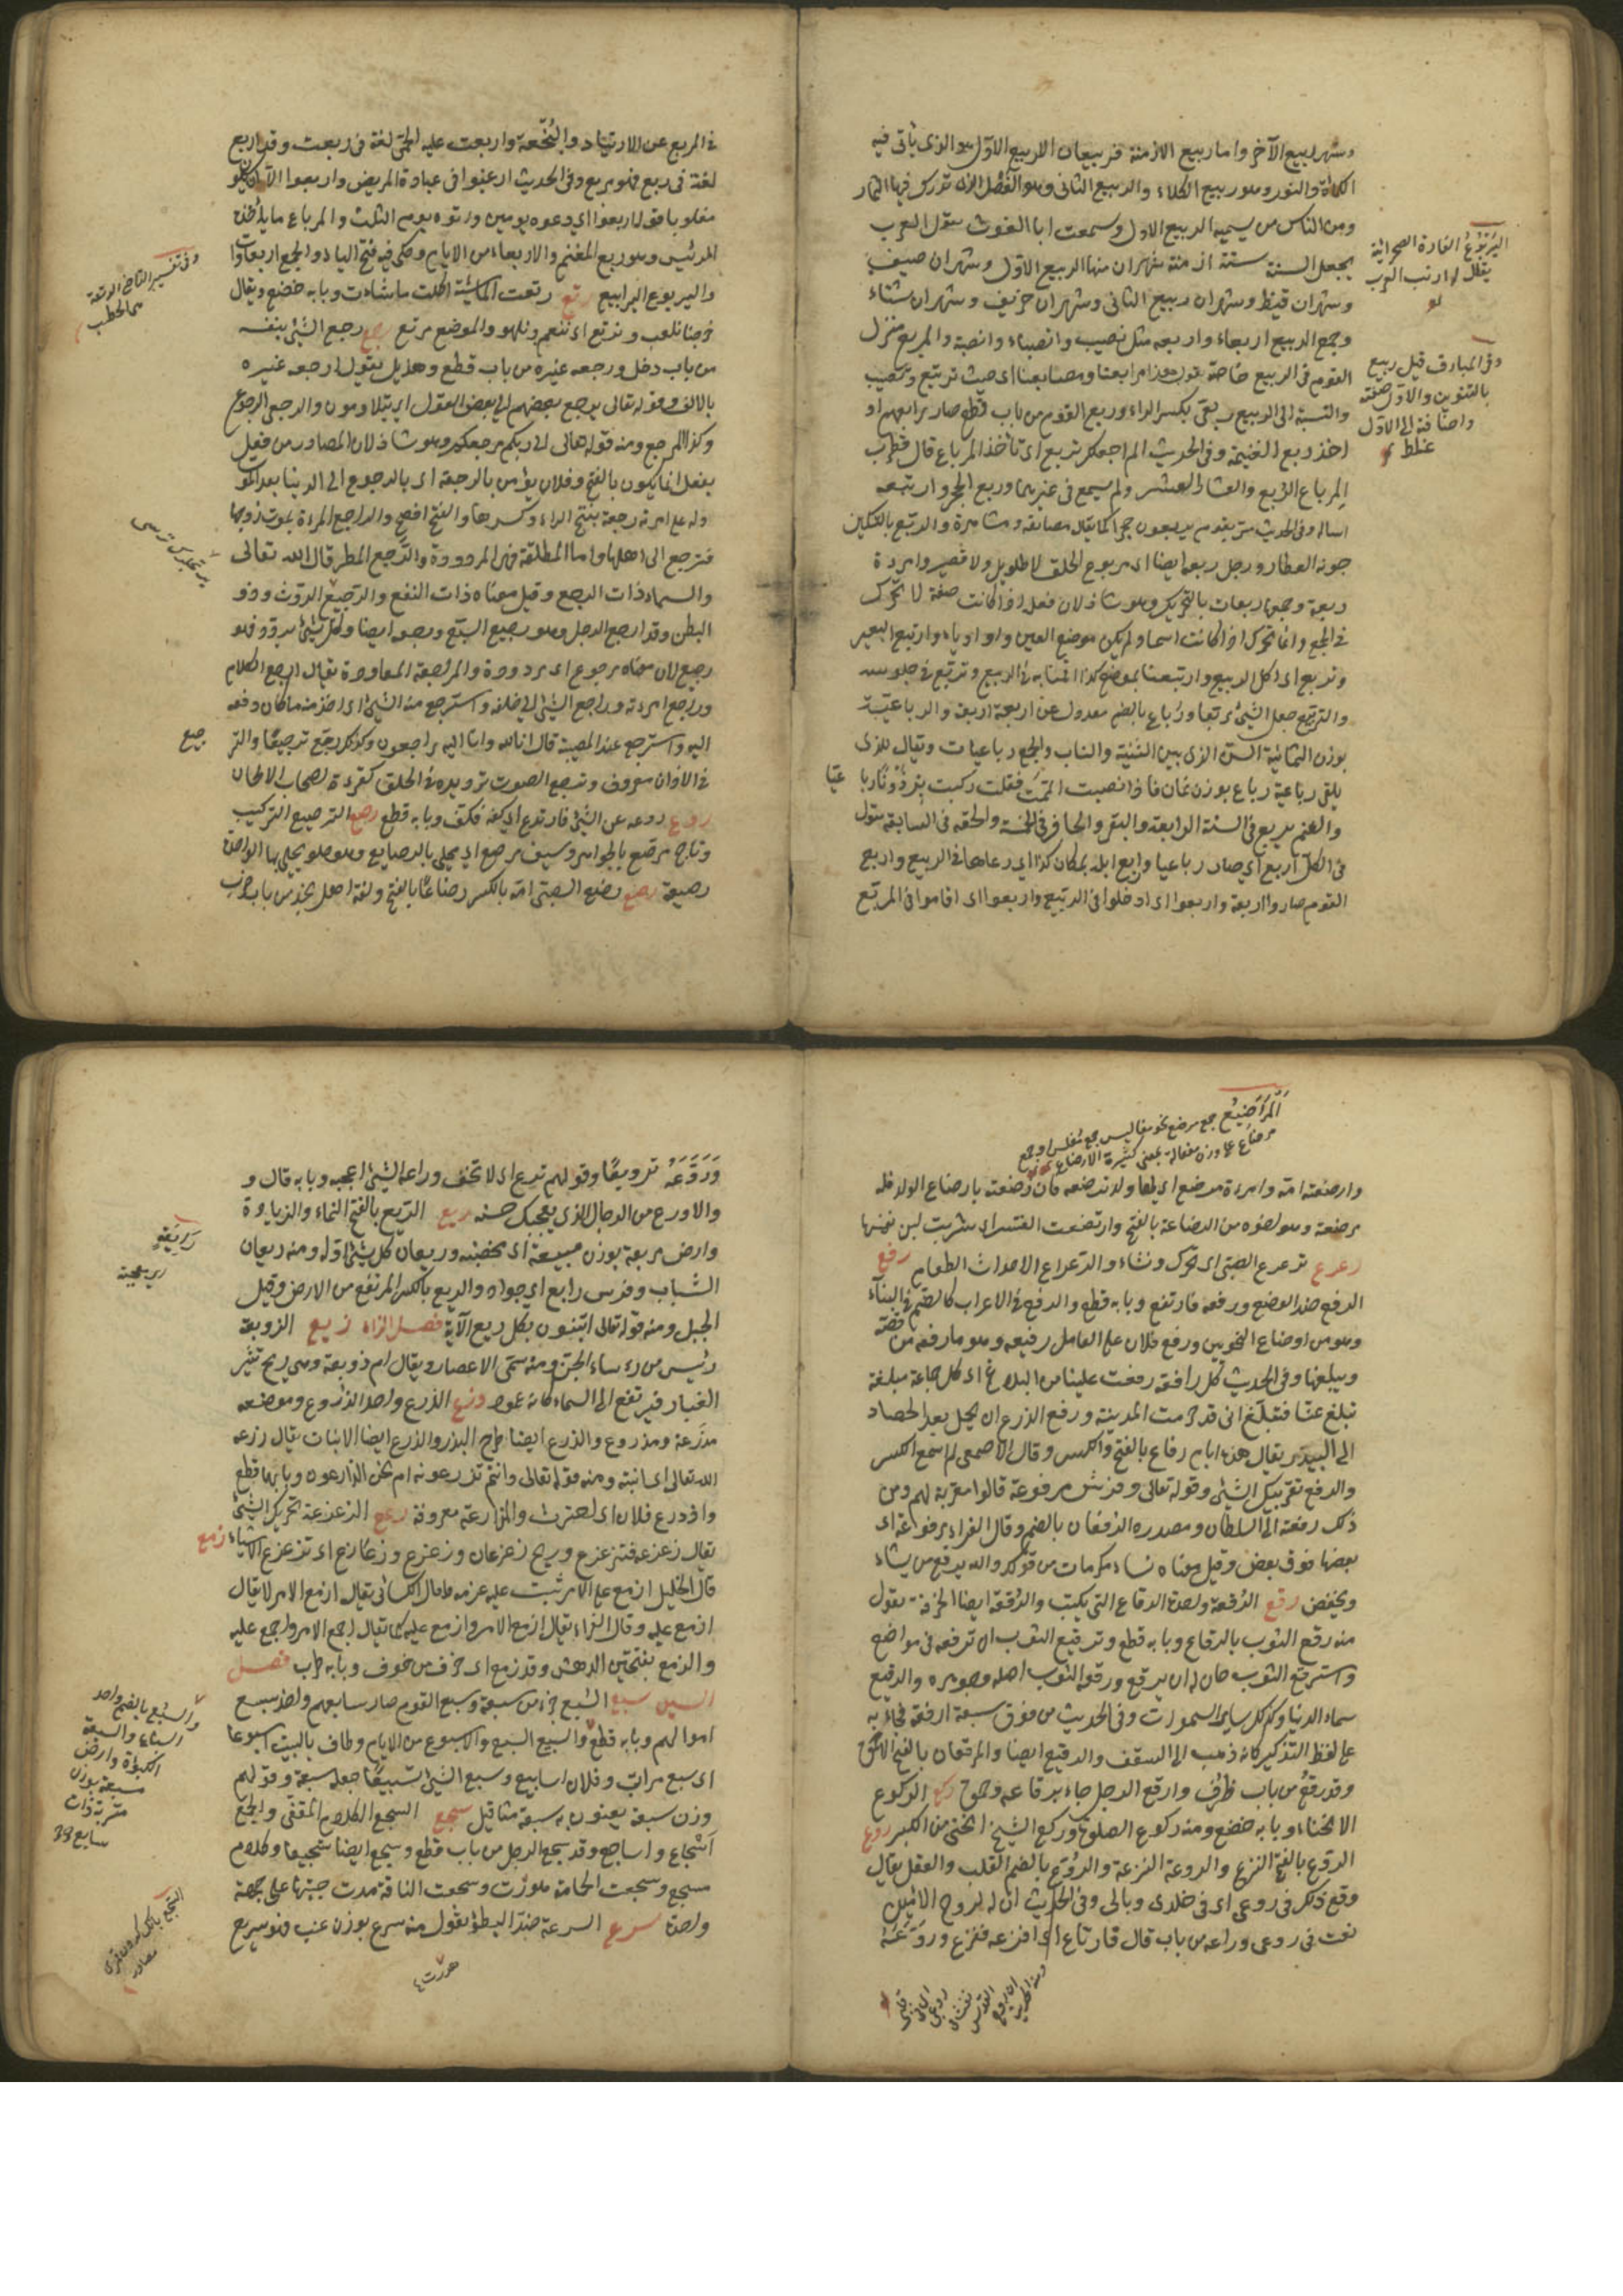 وشهر ربيع الآخر واما ربيع الازمنة فربيعان الربيع الاول وهو الذي يأتي فيه
الكماة والنور وهو ربيع الكلاء والربيع الثاني وهو الفصل الذي تدرك فيها الثمار
ومن الناس من يسميه الربيع الاول وسمعت ابا الغوث يقول العرب
يجعل السنة ستة ازمنة شهران منها الربيع الاول وشهران صيف
وشهران قيظ وشهران ربيع الثاني وشهران خريف وشهران شتاء
وجمع الربيع اربعاء واربعه مثل نصيب وانصباء وانصبة والمربع منزل
القوم في الربيع خاصة تقول هذا مرابعنا ومصايفنا اي حيث نرتبع ونصيف
والنسبة الى الربيع ربعي بكسر الراء وربع القوم من باب قطع صار رابعهم او
اخذ ربع الغنيمة وفي الحديث الم اجعلك تربع اي تأخذ المرباع قال قطرب
المرباع الربع والمعشار العشر ولم يسمع في غيرهما وربع الحجر وارتبعه
اساله وفي الحديث مر بقوم يربعون حجرا كما يقال مصايفة ومشاهرة والربعة بالتسكين
جونة العطار ورجل ربعه ايضا اي مربوع الخلق لا طويل ولا قصير وامراة
ربعة وجمعها ربعات بالتحريك وهو شاذ لان فعلة اذا كانت صفة لا تحرك
في الجمع وانما تحرك اذا كانت اسما ولم يكن موضع العين واو او ياء وارتبع البعير
وتربع اي اكل الربيع وارتبعنا بموضع كذا اقمنا به في الربيع وتربع في جلوسه
والتربيع جعل الشئ مربعا ورباع بالضم معدول عن اربعة اربعة والرباعية
بوزن الثمانية السن الذي بين الثنية والناب والجمع رباعيات ويقال للذي
يلقي رباعية رباع بوزن ثمان فاذا نصبت اتممت فقلت ركبت برذونا رباعيا
والغنم يربع في السنة الرابعة والبقر والحافر في الخمسة والخف في السابعة تقول
في الكل اربع اي صار رباعيا واربع ابله بمكان كذا اي رعاها في الربيع واربع
القوم صاروا اربعة واربعوا اي ادخلوا في الربيع واربعوا اي اقاموا في المربع
اليربوع الفارة الصحرائية
يقال له ارنب العرب
وفي المبارق قيل ربيع
بالتنوين والاول صفته
واضافته الى الاول
غلط
في المربع عن الارتياد والنجعة واربعت عليه الحمى لغة في ربعت وقد اربع
لغة في ربع فهو مربع وفي الحديث ارغبوا في عيادة المريض واربعوا الا ان يكون
مغلوبا قوله اربعوا اي دعوه يومين واتوه يوم الثلث والمرباع ما ياخذه
الرئيس وهو ربع المغنم والاربعاء من الايام وحكى فيه فتح الباء والجمع اربعاوات
واليربوع اليرابيع رتع رتعت الماشية اكلت ما شاءت وبابه خضع ويقال
خرجنا نلعب ونرتع اي ننعم ونلهو والموضع مرتع رجع رجع الشئ بنفسه
من باب دخل ورجعه غيره من باب قطع وهذيل يقول ارجعه غيره
بالالف وقوله تعالى يرجع بعضهم الى بعض القول اي يتلاومون والرجعي الرجوع
وكذا المرجع ومنه قوله تعالى الى ربكم مرجعكم وهو شاذ لان المصادر من فعل
يفعل انما يكون بالفتح وفلان يؤمن بالرجعة اي بالرجوع الى الدنيا بعد الموت
وله على امراته رجعة بفتح الراء وكسرها والفتح افصح والراجع المراة يموت زوجها
فترجع الى اهلها واما المطلقة فهي المردودة والرجع المطر قال الله تعالى
والسماء ذات الرجع وقيل معناه ذات النفع والرجيع الروث وذو
البطن وقد ارجع الرجل وهو رجيع السبع ورجعه ايضا وكل شئ مردد فهو
رجيع لان معناه مرجوع اي مردود والمراجعة المعاودة يقال راجع الكلام
وراجع امراته وراجع الشئ الى خلفه واسترجع منه الشئ اي اخذ منه ما كان دفعه
اليه واسترجع عند المصيبة قال انا لله وانا اليه راجعون وكذلك رجع ترجيعا والتر
جيع
في الاذان معروف وترجيع الصوت ترديده في الحلق كقراءة اصحاب الالحان
ردع ردعه عن الشئ فارتدع اي كفه فكف وبابه قطع رصع الترصيع التركيب
وتاج مرصع بالجواهر وسيف مرصع اي محلى بالرصايع وهو حلو يحلى بها الواحدة
رصيعة رضع رضع الصبي امه بالكسر رضاعا بالفتح ولغة اهل نجد من باب ضرب
وفي تفسير القاضي الرتعة
المراضيع جمع مرضع نحو مفاليس جمع مفلس او جمع
مرضاع على وزن مفعالة بمعنى كثيرة الارضاع
وارضعته امه وامراة مرضع اي لها ولد ترضعه فان وصفته بارضاع الولد قلت
مرضعة وهو اخوه من الرضاعة بالفتح وارتضعت العنز اي شربت لبن نفسها
رعرع ترعرع الصبي اي تحرك ونشاء والرعراع الاحداث الطعام رفع
الرفع ضد الوضع ورفعه فارتفع وبابه قطع والرفع في الاعراب كالضم في البناء
وهو من اوضاع النحويين ورفع فلان على العامل رفيعه وهو ما رفعه من قصته
ويبلغها وفي الحديث كل رافعة رفعت علينا من البلاغ اي كل جماعة مبلغة
تبلغ عنا فتبلغ اني قد حرمت المدينة ورفع الزرع ان يحمل بعد الحصاد
الى البيدر يقال هذه ايام رفاع بالفتح والكسر وقال الاصمعي لم اسمع الكسر
والرفع تقريبك الشئ وقوله تعالى وفرش مرفوعة قالوا مقربة لهم ومن
ذلك رفعته الى السلطان ومصدره الرفعان بالضم وقال الفراء مرفوعة اي
بعضها فوق بعض وقيل معناه نساء مكرمات من قولك والله يرفع من يشاء
ويخفض رقع الرقعة واحدة الرقاع التي يكتب والرقعة ايضا الخرقة تقول
منه رقع الثوب بالرقاع وبابه قطع وترقيع الثوب ان ترقعه في مواضع
واسترقع الثوب حان له ان يرقع ورقعة الثوب اصله وجوهره والرقيع
سماء الدنيا وكذلك ساير السموات وفي الحديث من فوق سبعة ارقعة فجاء به
على لفظ التذكير كانه ذهب الى السقف والرقيع ايضا والمرقعان بالفتح الاحمق
وقد رقع من باب ظرف وارقع الرجل جاء برقاعة وحمق ركع الركوع
الانحناء وبابه خضع ومنه ركوع الصلوة وركع الشيخ انحنى من الكبر روع
الروع بالفتح الفزع والروعة الفزعة والروع بالضم القلب والعقل يقال
وقع ذلك في روعي اي في خلدي وبالي وفي الحديث ان الروح الامين
نفث في روعي وراعه من باب قال فارتاع اي افزعه ففزع وروعه
وروعه ترويعا وقولهم لا ترع اي لا تخف وراعه الشئ اعجبه وبابه قال و
والاورع من الرجال الذي يعجبك حسنه ريع الريع بالفتح النماء والزيادة
وارض مريعة بوزن مبيعة اي مخصبة وريعان كل شئ اوله ومنه ريعان
الشباب وفرس رايع اي جواد والريع بالكسر المرتفع من الارض وقيل
الجبل ومنه قوله تعالى اتبنون بكل ريع الآية فصل الزاء زبع الزوبعة
رئيس من رءساء الجن ومنه سمي الاعصار ويقال ام زوبعة وهي ريح تثير
الغبار فيرتفع الى السماء كانه عمود زرع الزرع واحد الزروع وموضعه
مزرعة ومزدرع والزرع ايضا طرح البذر والزرع ايضا الانبات يقال زرعه
الله تعالى اي انبته ومنه قوله تعالى وانتم تزرعونه ام نحن الزارعون وبابهما قطع
وازدرع فلان اي احترث والمزارعة معروفة زعزع الزعزعة تحريك الشئ
يقال زعزعه فتزعزع وريح زعزعان وزعزع وزعازع اي تزعزع الاشياء زمع
قال الخليل ازمع على الامر ثبت عليه عزمه وقال الكسائي يقال ازمع الامر لا يقال
ازمع عليه وقال الفراء يقال ازمع الامر وازمع عليه كما يقال اجمع الامر واجمع عليه
والزمع بفتحتين الدهش وقد زمع اي خرف من خوف وبابه طرب فصل
السين سبع السبع جزء من سبعة وسبع القوم صار سابعهم واخذ سبع
اموالهم وبابه قطع والسبيع السبع والاسبوع من الايام وطاف بالبيت اسبوعا
اي سبع مرات وفلان اسابيع وسبع الشئ تسبيعا جعله سبعة وقولهم
وزن سبعة يعنون به سبعة مثاقيل سجع السجع الكلام المقفى والجمع
اسجاع واساجيع وقد سجع الرجل من باب قطع وسجع ايضا تسجيعا وكلام
مسجع وسجعت الحمامة هدرت وسجعت الناقة مدت حنينها على جهة
واحدة سرع السرعة ضد البطؤ تقول منه سرع بوزن عنب فهو سريع
والسبع بالضم واحد
السباع والسبعة
اللبوة وارض
مسبعة بوزن
متربة ذات
سباع